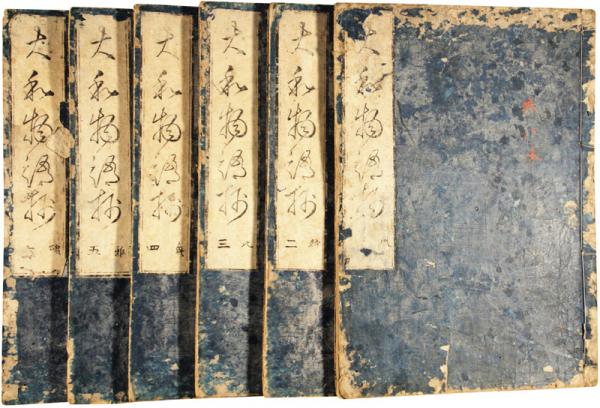 大和物語抄
大和物語抄 二
大和物語抄 三
大和物語抄 四
大和物語抄 五
大和物語抄